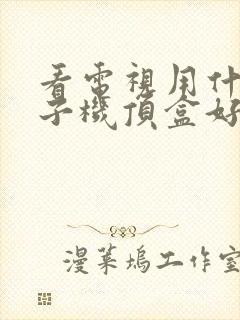 看電視用什
子機頂盒好
漫葉塢工作室